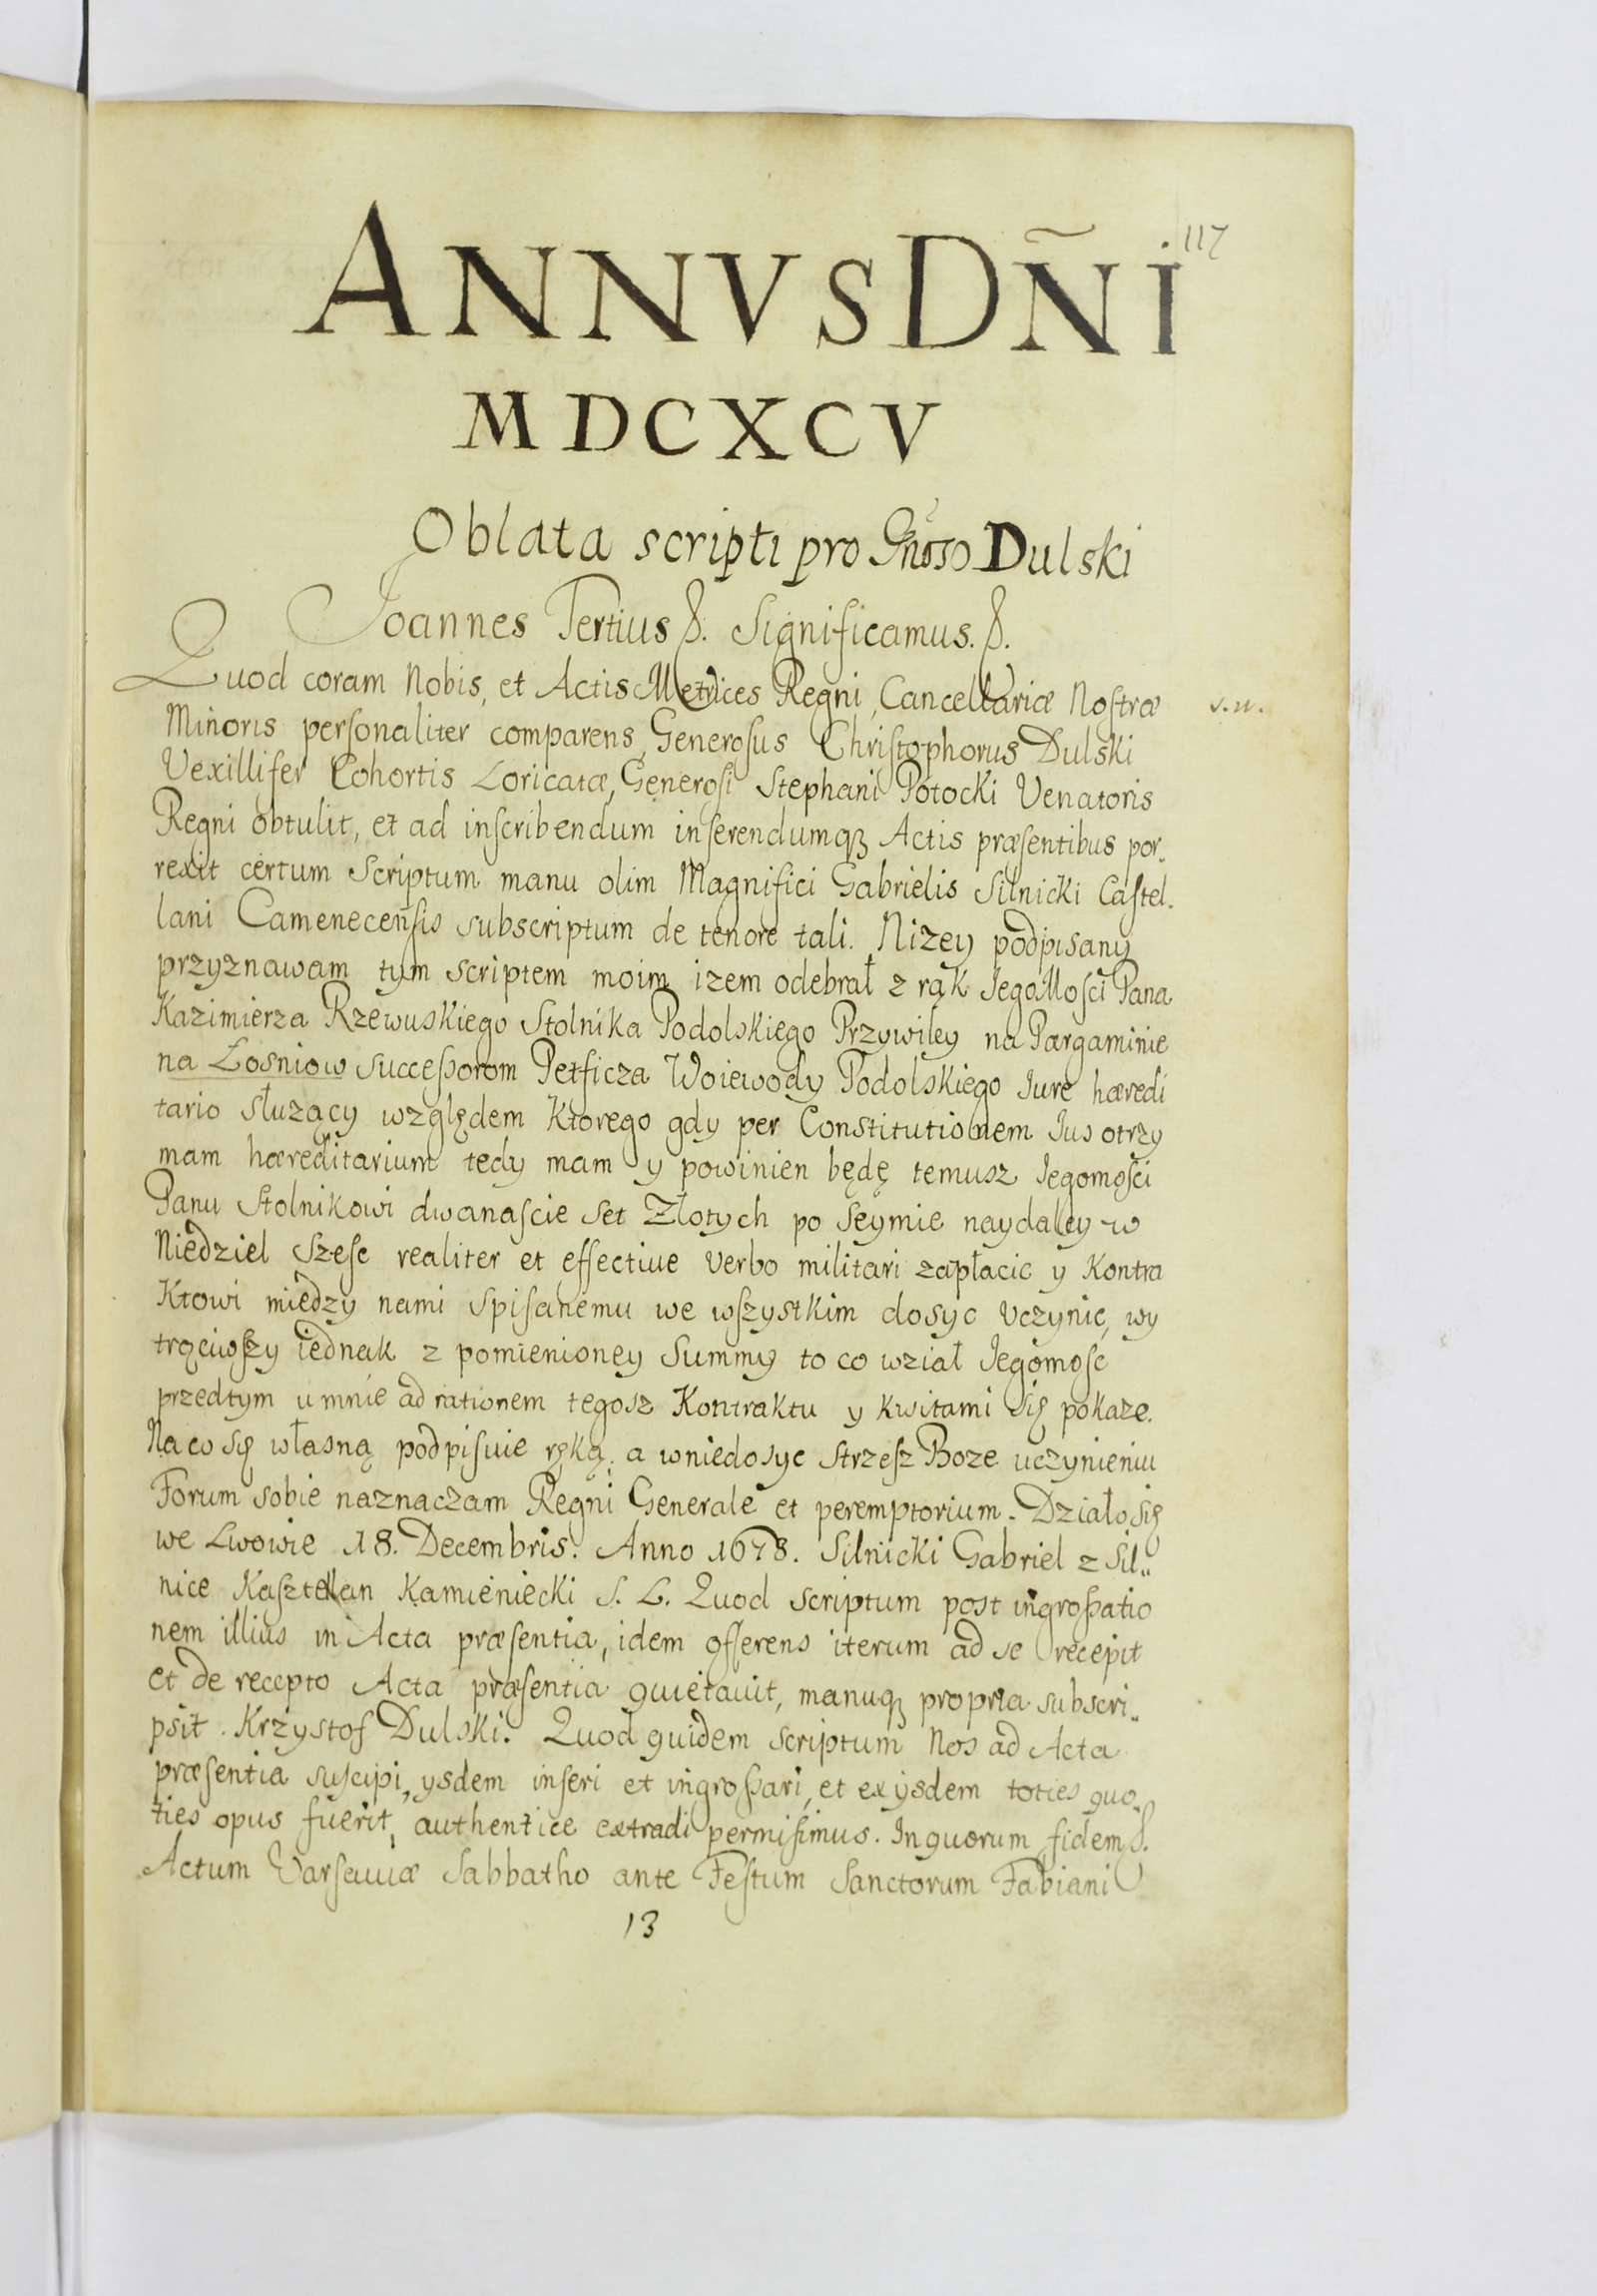 117
ANNVS DÑI
MDCXCV
Oblata scripti pro Gnoso Dulski
Joannes Tertius &. Significamus. &.
Quod coram Nobis, et Actis Metrices Regni, Cancellariæ Noſtræ
Minoris perſonaliter comparens, Generoſus Chriſtophorus Dulski
Vexillifer Cohortis Loricatæ, Generoſi Stephani Potocki Venatoris
Regni obtulit, et ad inſcribendum inſerendumqꝫ Actis præſentibus por-
rexit certum Scriptum manu olim Magnifici Gabrielis Silnicki Caſtel-
lani Camenecenſis subscriptum de tenore tali. Nizey podpisany
przyznawam tym scriptem moim izem odebrał z rąk JegoMoſci Pana
Kazimierza Rzewuskiego Stolnika Podolskiego Przywiley na Pargaminie
na Łosniow succeſſorom Petficza Woiewody Podolskiego Jure hæredi
tario służący względem Ktorego gdy per Constitutionem Jus otrzy
mam hæreditarium tedy mam y powinien będę temusz Jegomoſci
Panu Stolnikowi dwanaſcie set Złotych po Seymie naydaley w
Niedziel Szeſc realiter et effectiue verbo militari zapłacic y Kontra
Ktowi miedzy nami Spiſanemu we wſzystkim dosyc Vczynic, wy
trąciwſzy iednak z pomienioney Summy to co wział Jegomośc
przedtym u mnie ad rationem tegosz Kontraktu y kwitami się pokaze.
Na co się własną podpiſuie ręką. a wniedosyc Strzeſz Boze uczynieniu
Forum sobie naznaczam Regni Generale et peremptorium. Działo się
we Lwowie 18. Decembris. Anno 1678. Silnicki Gabriel z Sil-
nice Kaſztellan Kamieniecki S. L. Quod scriptum post ingroſſatio
nem illius in Acta præſentia, idem offerens iterum ad se recepit
et de recepto Acta præſentia quietauit, manuqꝫ propria subscri-
psit. Krzystof Dulski. Quod quidem scriptum Nos ad Acta
præſentia suſcipi, ysdem inſeri et ingroſſari, et ex ysdem toties quo-
ties opus fuerit, authentice extradi permiſimus. In quorum fidem &.
Actum Varſauiæ Sabbatho ante Feſtum Sanctorum Fabiani
13